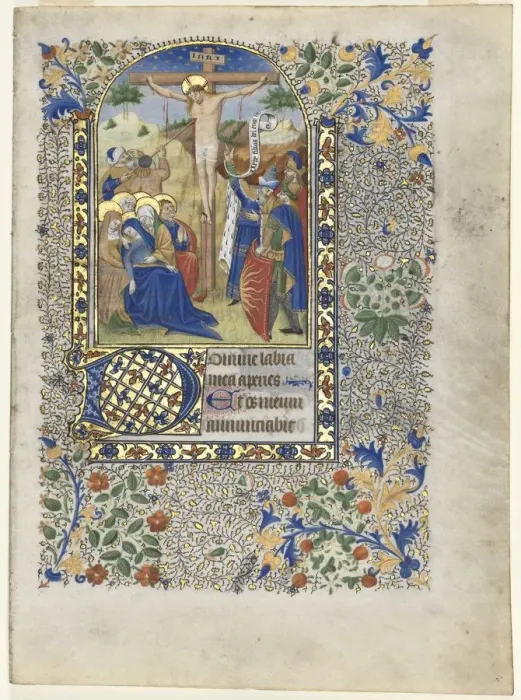 INRI
Vere filius dei
Domine labia
mea aperies
Et os meum
annunciabit